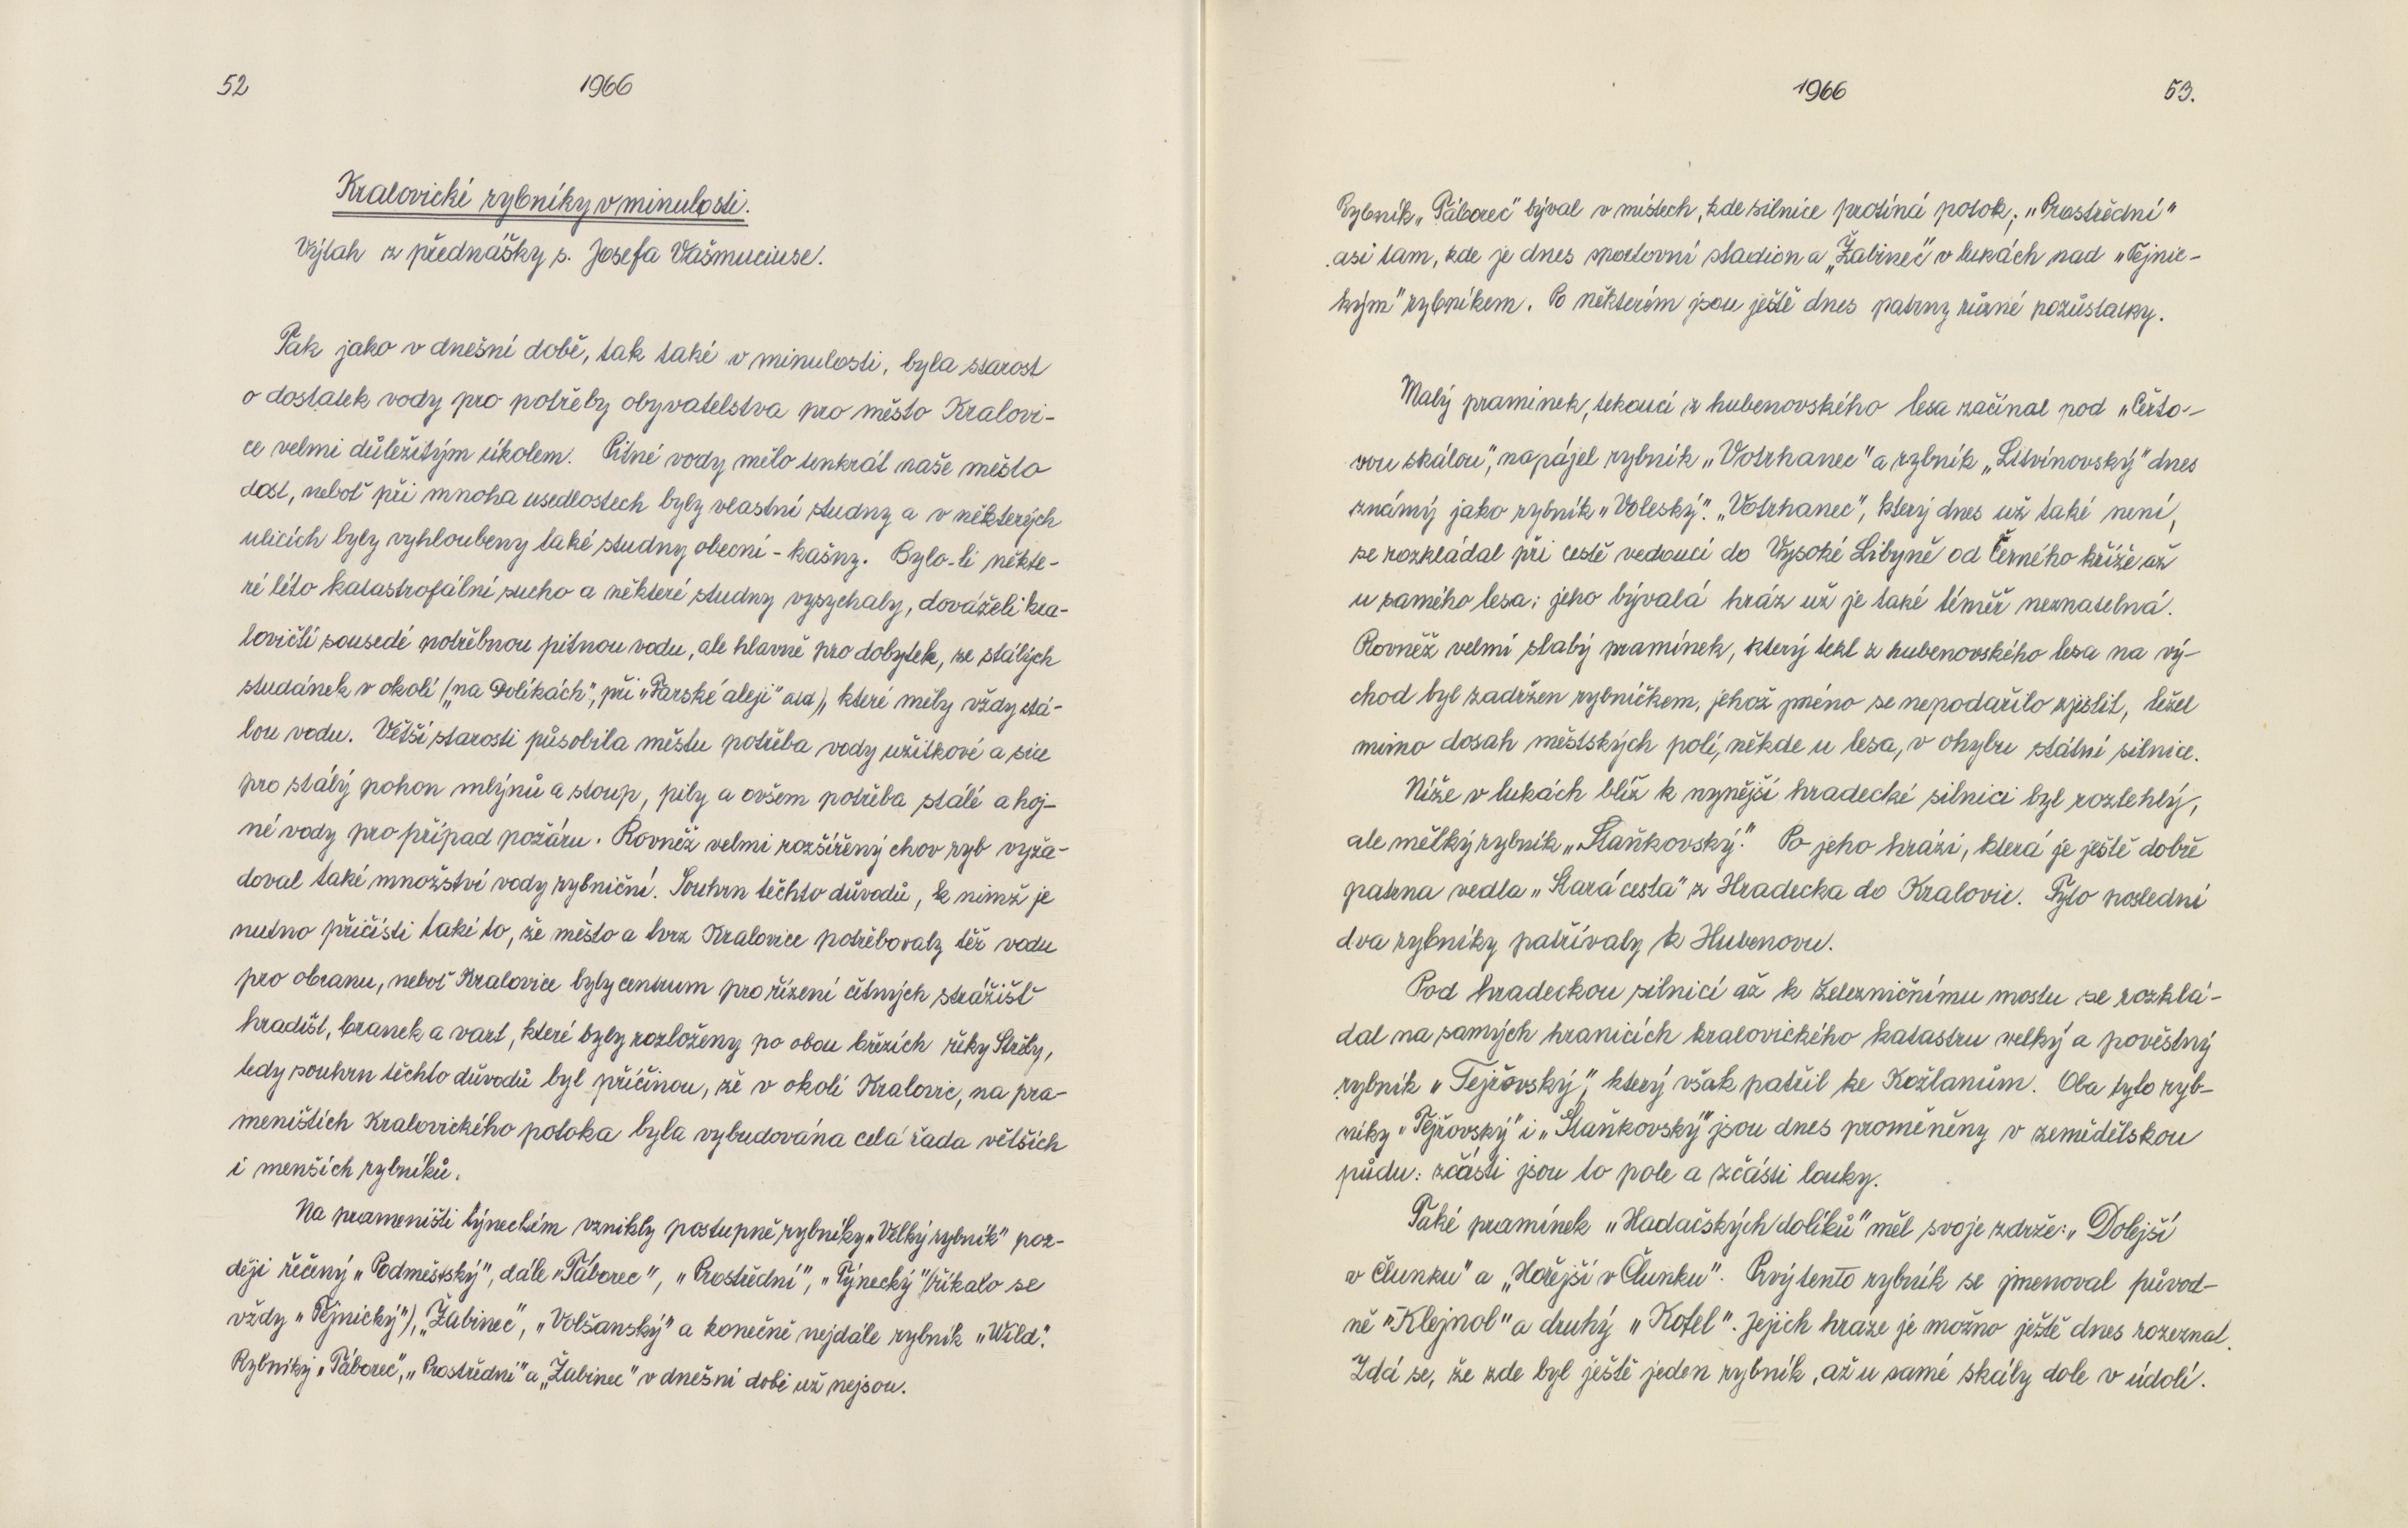 52
1966
Kralovické rybníky v minulosti.
Výtah z přednášky s. Josefa Vašmuciuse.
Tak jako v dnešní době, tak také v minulosti, byla starost
o dostatek vody pro potřeby obyvatelstva pro město Kralovi-
ce velmi důležitým úkolem. Pitné vody mělo tenkrát naše město
dost, neboť při mnoha usedlostech byly vlastní studny a v některých
ulicích byly vyhloubeny také studny obecní - kašny. Bylo-li někte-
ré léto katastrofální sucho a některé studny vysychaly, dováželi kra-
lovičtí sousedé potřebnou pitnou vodu, ale hlavně pro dobytek, ze stálých
studánek v okolí („na Dolíkách", při „Farské aleji" atd), které měly vždy stá-
lou vodu. Větší starosti působila městu potřeba vody užitkové a sice
pro stálý pohon mlýnů a stoup, pily a ovšem potřeba stálé a hoj-
né vody pro případ požáru. Rovněž velmi rozšířený chov ryb vyža-
doval také množství vody rybniční. Souhrn těchto důvodů, k nimž je
nutno přičísti také to, že město a tvrz Kralovice potřebovaly též vodu
pro obranu, neboť Kralovice byly centrum pro řízení četných strážišť
hradišt, branek a vart, které byly rozloženy po obou březích řeky Střely,
tedy souhrn těchto důvodů byl příčinou, že v okolí Kralovic, na pra-
meništích Kralovického potoka byla vybudována celá řada větších
i menších rybníků.
Na prameništi týneckém vznikly postupně rybníky „Velký rybník" poz-
ději řečený „Podměstský", dále „Táborec", „Prostřední", „Týnecký" (říkalo se
vždy „Tejnický"), „Žabinec", „Volšanský" a konečně nejdále rybník „Wild".
Rybníky „Táborec", „Prostřední" a „Žabinec" v dnešní době už nejsou.
1966
53.
Rybník „Táborec" býval v místech, kde silnice protíná potok, „Prostřední"
asi tam, kde je dnes sportovní stadion a „Žabinec" v lukách nad „Tejnic-
kým" rybníkem. Po některém jsou ještě dnes patrny různé pozůstatky.
Malý pramínek, tekoucí z hubenovského lesa začínal pod „Čerto-
vou skálou", napájel rybník „Votrhanec" a rybník „Litvínovský" dnes
známý jako rybník „Voleský". „Votrhanec", který dnes už také není,
se rozkládal při cestě vedoucí do Vysoké Libyně od Černého kříže až
u samého lesa; jeho bývalá hráz už je také téměř neznatelná.
Rovněž velmi slabý pramínek, který tekl z hubenovského lesa na vý-
chod byl zadržen rybníčkem, jehož jméno se nepodařilo zjistit, ležel
mimo dosah městských polí, někde u lesa, v ohybu státní silnice.
Níže v lukách blíž k nynější hradecké silnici byl rozlehlý,
ale mělký rybník „Staňkovský". Po jeho hrázi, která je ještě dobře
patrna vedla „Stará cesta" z Hradecka do Kralovic. Tyto poslední
dva rybníky patřívaly k Hubenovu.
Pod hradeckou silnicí až k železničnímu mostu se rozklá-
dal na samých hranicích kralovického katastru velký a pověstný
rybník „Tejřovský", který však patřil ke Kožlanům. Oba tyto ryb-
níky „Tejřovský" i „Staňkovský" jsou dnes proměněny v zemědělskou
půdu: zčásti jsou to pole a zčásti louky.
Také pramínek „Hadačských dolíků" měl svoje zdrže: „Dolejší
v Člunku" a „Hořejší v Člunku". Prvý tento rybník se jmenoval původ-
ně „Klejnol" a druhý „Kotel". Jejich hráze je možno ještě dnes rozeznat.
Zdá se, že zde byl ještě jeden rybník, až u samé skály dole v údolí.